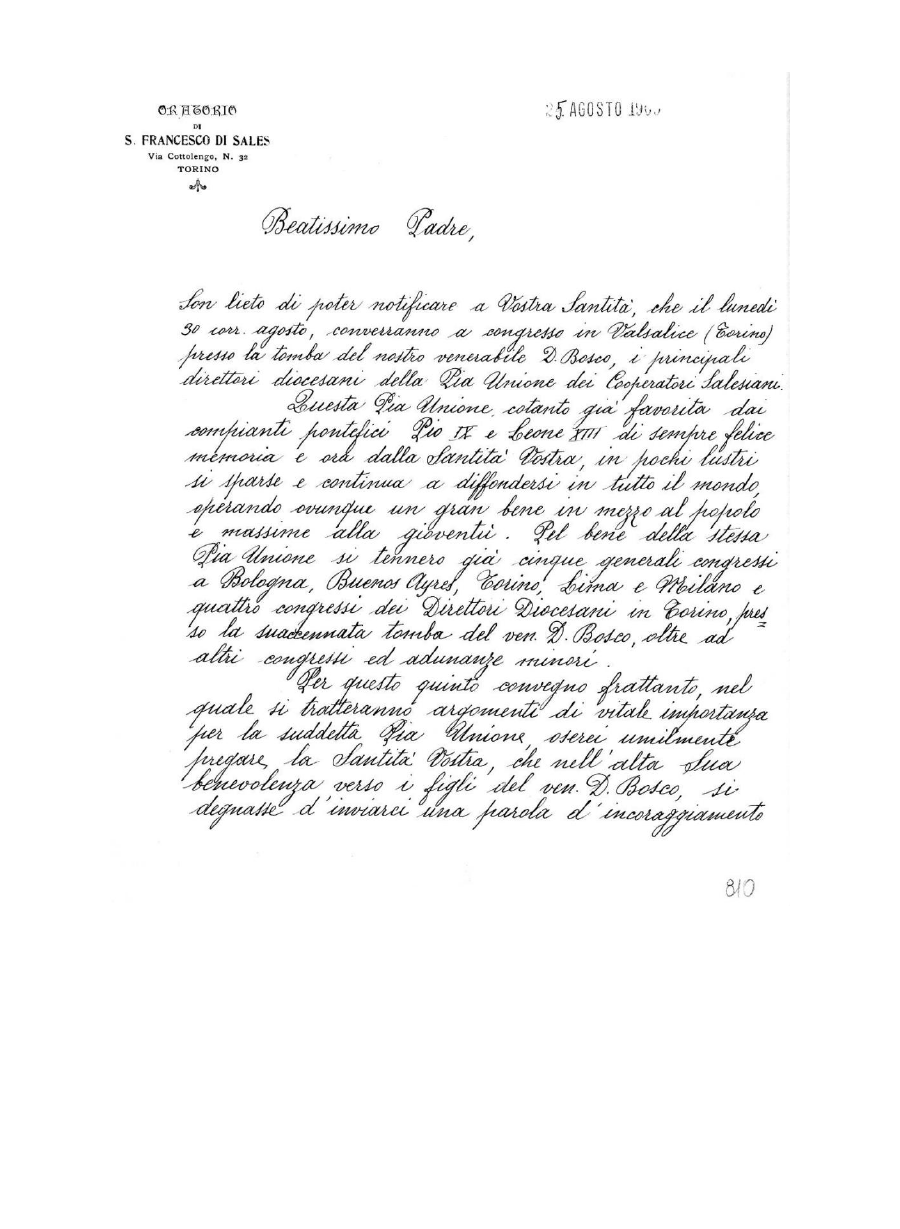 ORATORIO
DI
S. FRANCESCO DI SALES
Via Cottolengo, N. 32
TORINO
25 AGOSTO
Beatissimo Padre,
Son lieto di poter notificare a Vostra Santità, che il lunedì
30 corr. agosto, converranno a congresso in Valsalice (Torino)
presso la tomba del nostro venerabile D. Bosco, i principali
direttori diocesani della Pia Unione dei Cooperatori Salesiani.
Questa Pia Unione, cotanto già favorita dai
compianti pontefici Pio IX e Leone XIII di sempre felice
memoria e ora dalla Santità Vostra, in pochi lustri
si sparse e continua a diffondersi in tutto il mondo,
operando ovunque un gran bene in mezzo al popolo
e massime alla gioventù. Pel bene della stessa
Pia Unione si tennero già cinque generali congressi
a Bologna, Buenos Ayres, Torino, Lima e Milano e
quattro congressi dei Direttori Diocesani in Torino, pres=
so la suaccennata tomba del ven. D. Bosco, oltre ad
altri congressi ed adunanze minori.
Per questo quinto convegno frattanto, nel
quale si tratteranno argomenti di vitale importanza
per la suddetta Pia Unione, oserei umilmente
pregare, la Santità Vostra, che nell'alta Sua
benevolenza verso i figli del ven. D. Bosco, si
degnasse d'inviarci una parola d'incoraggiamento
810